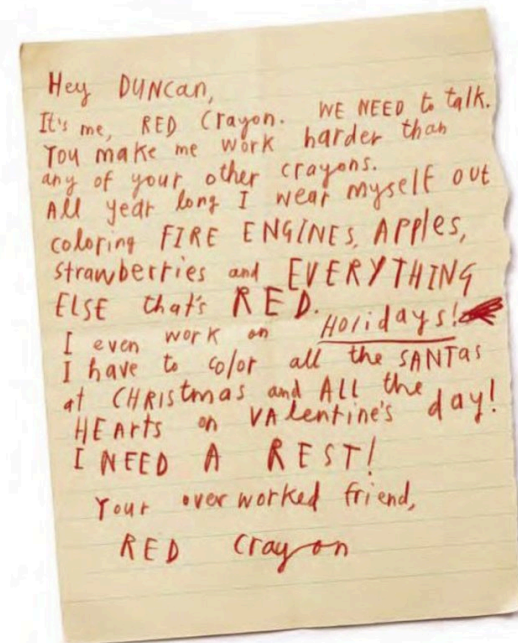 Hey DUNCan,
It's me, RED Crayon. WE NEED to talk.
You make me work harder than
any of your other crayons.
All year long I wear myself out
coloring FIRE ENGINES, Apples,
strawberries and EVERYTHING
ELSE that's RED.
I even work on Holidays!
I have to color all the SANTas
at CHRIstmas and ALL the
HEArts on VAlentine's day!
I NEED A REST!
Your overworked friend,
RED Crayon